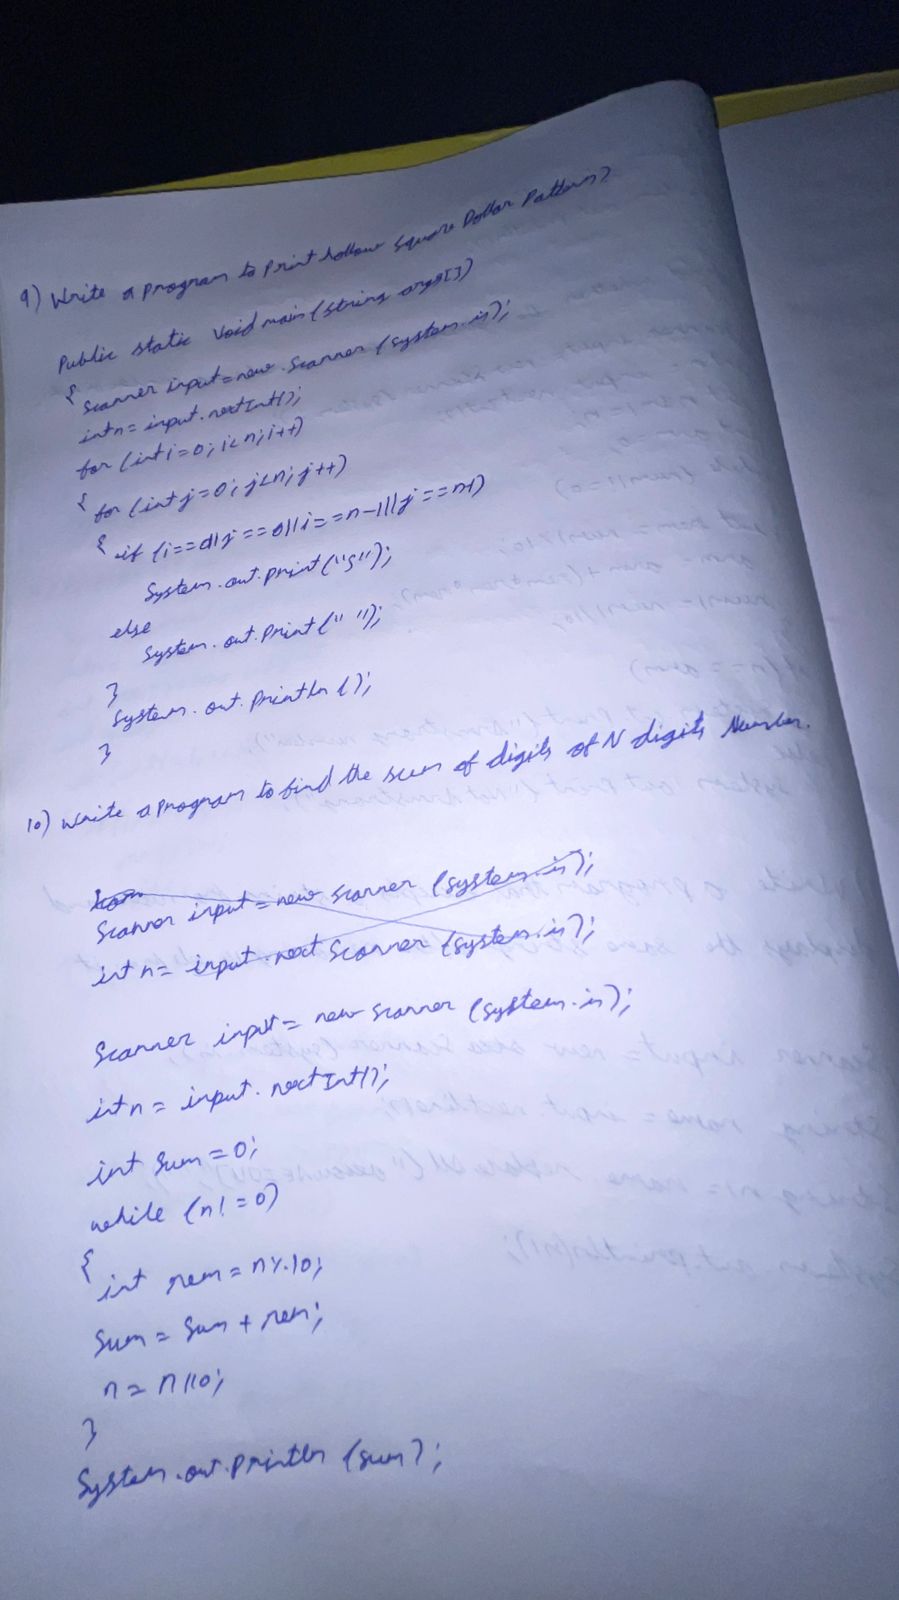 9) Write a program to Print hollow Square Dollar Pattern?
Public static void main(string args[])
{ Scanner input = new Scanner (system.in);
int n = input.nextInt();
for (int i=0; i<n; i++)
{ for (int j=0; j<n; j++)
{ if (i==0||j==0||i==n-1||j==n-1)
System.out.print("$");
else
System.out.Print(" ");
}
System.out.Println();
}
10) Write a program to find the sum of digits of N digits Number.
Scanner input = new Scanner (system.in);
int n = input.next Scanner (system.in);
Scanner input = new Scanner (system.in);
int n = input.nextInt();
int Sum = 0;
while (n!=0)
{
int rem = n%10;
Sum = Sum + rem;
n = n/10;
}
System.out.println (sum);